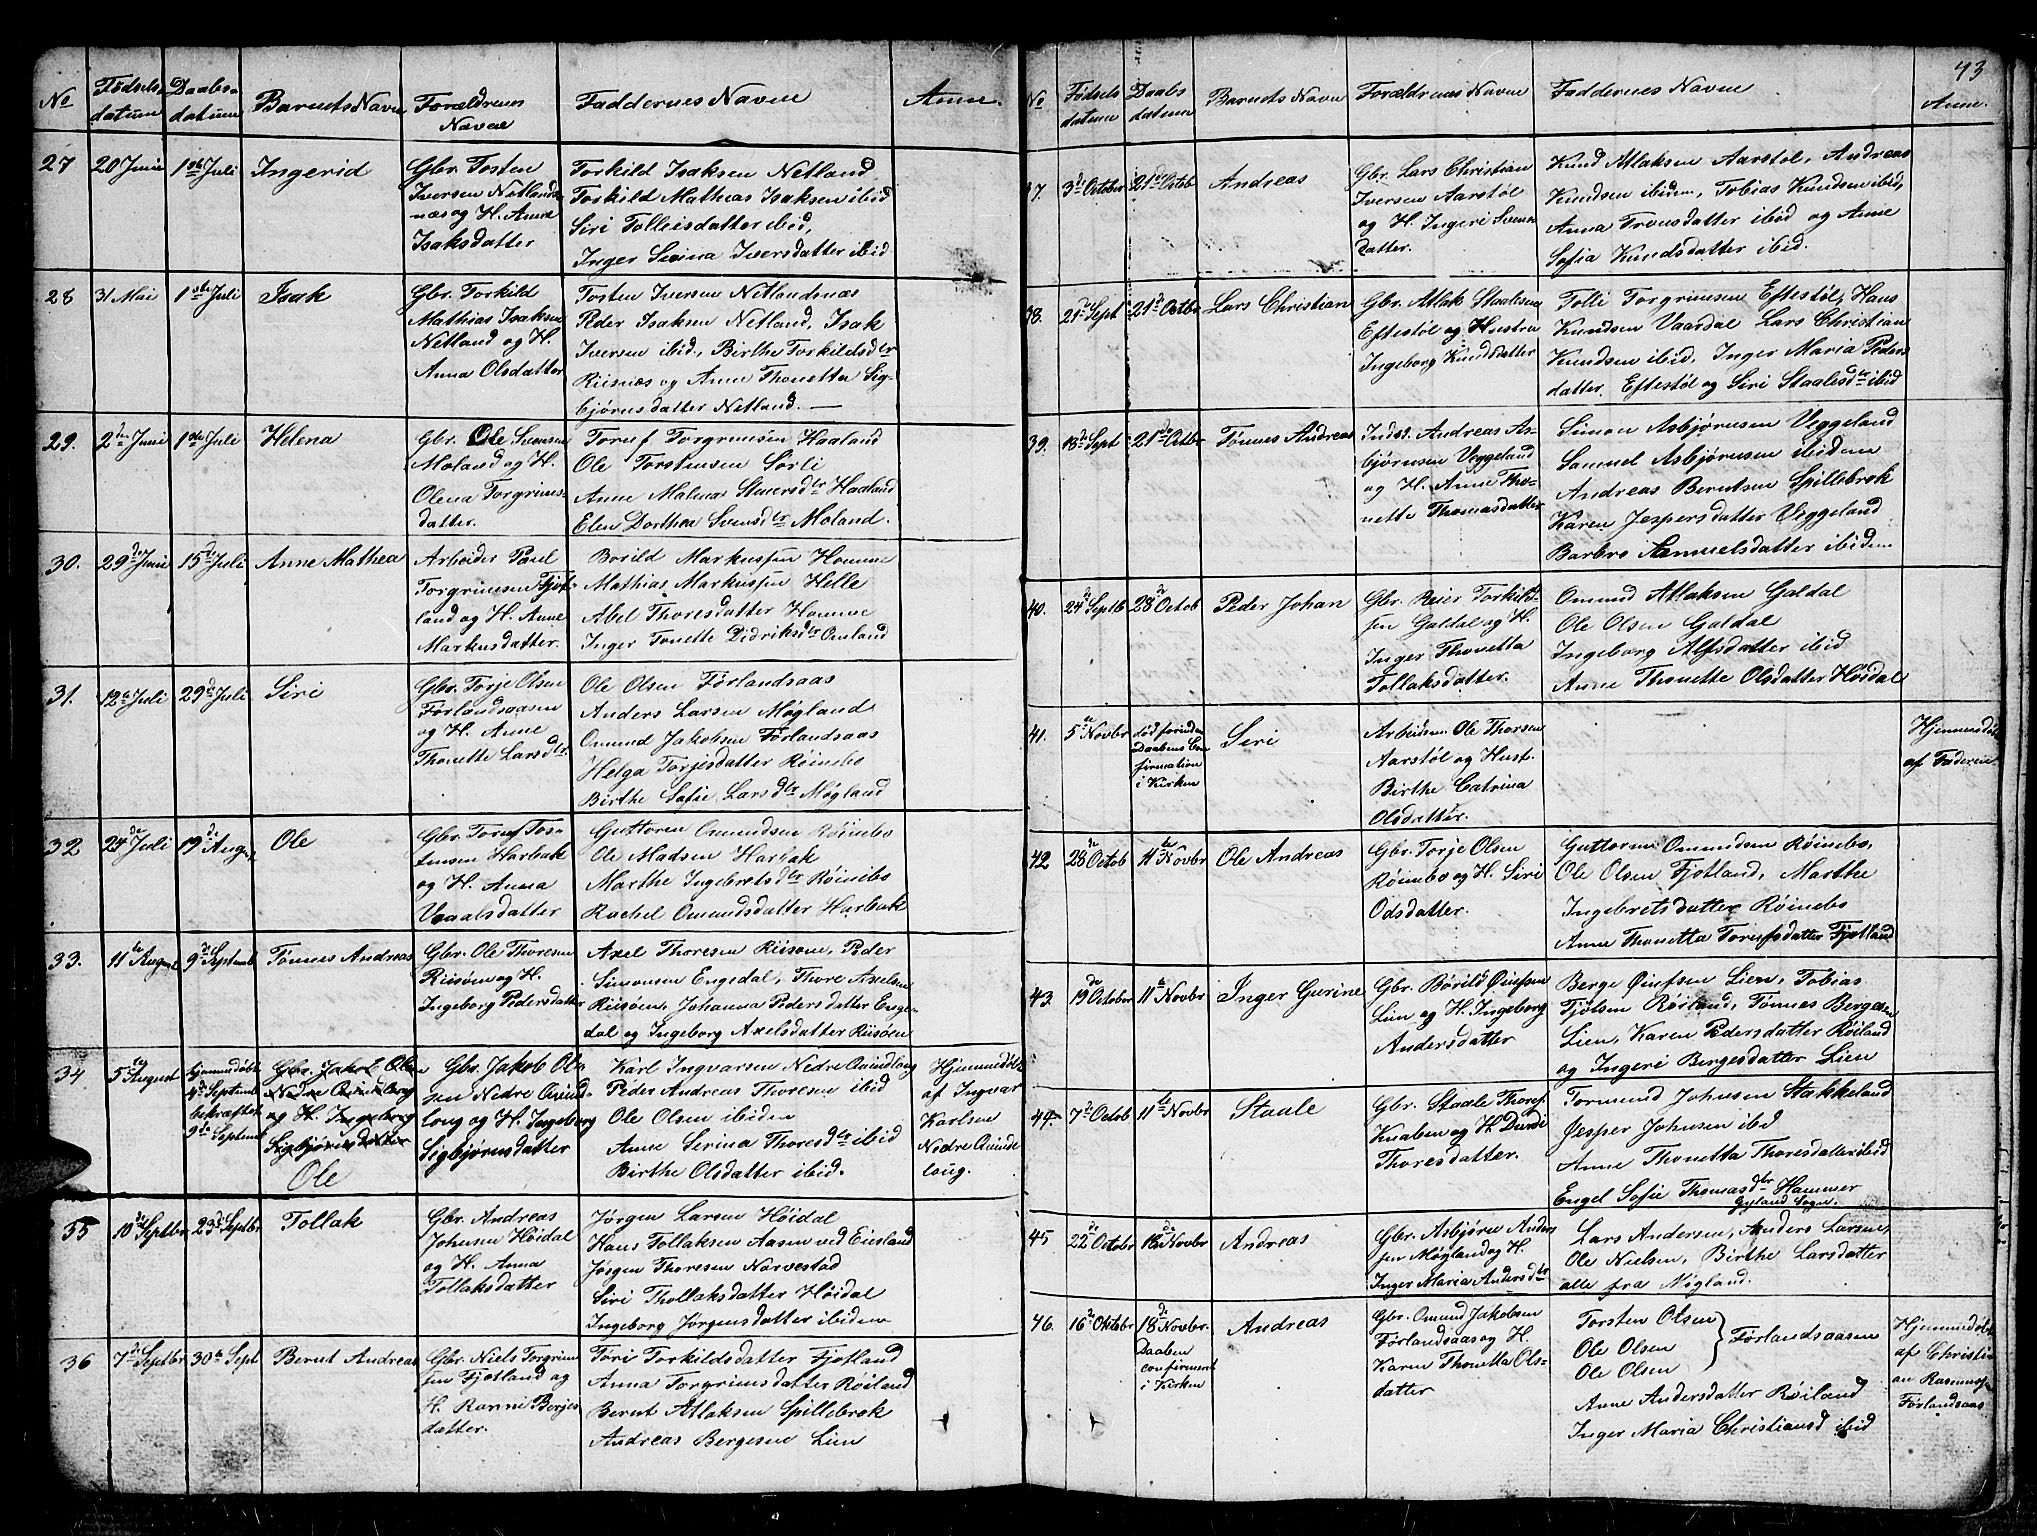 43
No
Fødsels-
datum
Daabs-
datum
Barnets Navn
Forældrenes
Navne
Faddernes Navne
Anm.
27
20 Juni
1ste Juli
Ingerid
Gbr. Tosten
Iversen Netlands-
næs og H. Anne
Isaksdatter
Torkild Isaksen Netland
Torkild Mathias Isaksen ibid
Siri Tolleisdatter ibid,
Inger Serina Iversdatter ibid
28
31 Mai
1ste Juli
Isak
Gbr. Torkild
Mathias Isaksen
Netland og H.
Anna Olsdatter
Tosten Iversen Netlandsnæs
Peder Isaksen Netland, Isak
Iversen ibid, Birthe Torkildsdtr
Risnæs og Anne Thonetta Sig-
bjørnsdatter Netland.
29.
2den Juni
1ste Juli
Helena
Gbr. Ole Svensen
Moland og H.
Olena Torgrims-
datter.
Toruf Torgrimsen Haaland
Ole Torstensen Sørli
Anne Malena dtr Haaland
Elen Dorthea Svensdtr Moland.
30.
29de Juni
15de Juli
Anne Mathea
Arbeider Paul
Torgrimsen Fjot-
land og H. Anne
Markusdatter.
Borild Markussen Homme
Mathias Markussen Helle
Abel Thoresdatter Homme
Inger Tonette Didriksdtr Omland
31.
12te Juli
29de Juli
Siri
Gbr. Torje Olsen
Førlandsaasen
og H. Anne
Thonette Larsdtr.
Ole Olsen Førlandsaas
Anders Larsen Møgland
Omund Jakobsen Førlandsaas
Helga Torjesdatter Røinebo
Birthe Sofie Larsdtr Møgland
32
24de Juli
19de Aug.
Ole
Gbr. Toruf Tos-
tensen Harbak
og H. Anna
Vraalsdatter
Guttorm Omundsen Røinebo
Ole Madsen Harbak
Marthe Ingebretsdtr Røinebo
Rachel Omundsdatter Harbak
33.
11te August
9de Septemb
Tønnes Andreas
Gbr. Ole Thoresen
Risøen og H.
Ingeborg Pedersdatter
Axel Thoresen Riisøen, Peder
Simonsen Engedal, Thore Axelsen
Riisøen, Johanna Pedersdatter Enge-
dal og Ingeborg Axelsdatter Riisøen
34
5te August
Hjemmedøbt
4de Septemb
bekræftet
9de Septemb
Gbr. Jakob Olsen
Nedre Qvindlong
og H. Ingeborg
Sigbjørnsdatter
Ole
Gbr. Jakob Ol-
sen Nedre Qvind-
long og H. Ingeborg
Sigbjørnsdatter
Karl Ingvarsen Nedre Qvindlong
Peder Andreas Thoresen ibid
Ole Olsen ibiden
Anne Serina Thoresdtr ibid
Birthe Olsdatter ibid.
Hjemmedøbt
af Ingvar
Karlsen
Nedre Qvinde
long.
35
10de Septbr
23de Septbr.
Tollak
Gbr. Andreas
Johnsen Høidal
og H. Anna
Tollaksdatter
Jørgen Larsen Høidal
Hans Tollaksen Aasen ved Eiesland
Jørgen Thoresen Narvestad
Siri Thollaksdatter Høidal
Ingeborg Jørgensdatter ibidem
36
7de Septbr
30te Sept
Bernt Andreas
Gbr. Niels Torgrim-
sen Fjotland og
H. Ranni Borjes-
datter.
Tori Torkildsdatter Fjotland
Anna Torgrimsdatter Røiland
Bernt Atlaksen Spillebrok
Andreas Bergesen Lien
No
Fødsels
datum
Daabs
datum
Barnets Navn
Forældrenes Navne
Faddernes Navne
Anm.
37.
3de October
21de Octob
Andreas
Gbr. Lars Christian
Iversen Aarstøl
og H. Ingeri Svens-
datter.
Knud Atlaksen Aarstøl, Andreas
Knudsen ibidem, Tobias Knudsen ibid,
Anna Tronsdatter ibid og Anne
Sofia Knudsdatter ibid.
38.
21de Sept
21de Octbr
Lars Christian
Gbr. Atlak Staalesen
Eftestøl og Hustru
Ingeborg Knudsdatter
Tolli Torgrimsen Eftestøl, Hans
Knudsen Vaardal Lars Christian
Knudsen ibid, Inger Maria Peders-
datter, Eftestøl og Siri Staalesdtr ibid
39.
18de Sept
21de Octbr
Tønnes Andreas
Inds. Andreas As-
bjørnsen Veggeland
og H. Anne Tho-
nette Thomasdatter
Simon Asbjørnsen Veggeland
Samuel Asbjørnsen ibidem
Andreas Berntsen Spillebrok
Karen Jespersdatter Veggeland
Barbro Samuelsdatter ibidem
40.
24de Septb
28de Octob
Peder Johan
Gbr. Reier Torkild-
sen Galdal og H.
Inger Thonetta
Tollaksdatter.
Omund Atlaksen Galdal
Ole Olsen Galdal
Ingeborg Alfsdatter ibid
Anne Thonette Olsdatter Høidal
41.
5te Novbr
død forinden
Daabens Con-
firmation
i Kirken
Siri
Arbeidsm. Ole Thorsen
Aarstøl og Hust.
Birthe Catrina
Olsdatter.
Hjemmedøbt
af Faderen
42.
28de Octob
11te Novbr
Ole Andreas
Gbr. Torje Olsen
Røinebo og H. Siri
Odsdatter.
Guttorm Omundsen Røinebo,
Ole Olsen Fjotland, Marthe
Ingebretsdatter Røinebo
Anne Thonetta Torufsdatter Fjotland
43.
19de October
11te Novbr
Inger Gurine
Gbr. Børild Øiufsen
Lien og H. Ingeborg
Andersdatter
Berge Øiufsen Lien, Tobias
Fjølsen Røiland, Tønnes Bergesen
Lien, Karen Pedersdatter Røiland
og Ingeri Bergesdatter Lien
44.
7de Octob
11te Novbr
Staale
Gbr. Staale Thores.
Knaben og H. Durdi
Thoresdatter.
Tormund Johnsen Stakkeland
Jesper Johnsen ibid
Anne Thonetta Thoresdatter ibid
Engel Sofie Thomasdtr Hammer
Gyland Sogn.
45
22de Octobr
18de Novbr
Andreas
Gbr. Asbjørn Anders-
sen Møgland og H.
Inger Maria Andersdtr
Lars Andersen, Anders Larsen,
Ole Nielsen, Birthe Larsdatter
alle fra Møgland.
46.
16de Oktobr
18de Novbr.
Daaben
confirmeret
i Kirken
Andreas
Gbr. Omund Jakobsen
Førlandsaas og H.
Karen Thonetta Ols-
datter
Torsten Olsen
Ole Olsen
Ole Olsen
Førlandsaasen
Anne Andersdatter Røiland
Inger Maria Christiansd ibid
Hjemmedøbt
af Christi-
an Rasmuss.
Førlandsaas